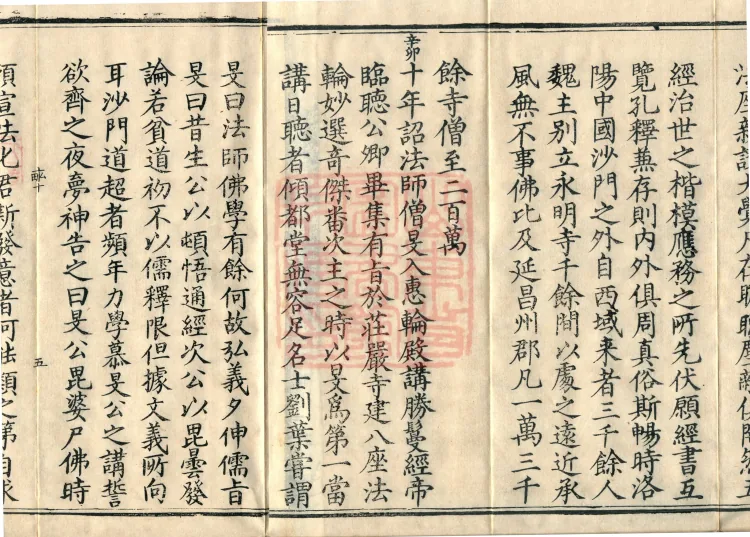 經治世之楷模應務之所先伏願經書互
覽孔釋兼存則内外俱周真俗斯暢時洛
陽中國沙門之外自西域来者三千餘人
魏主別立永明寺千餘間以處之遠近承
風無不事佛比及延昌州郡凡一萬三千
餘寺僧至二百萬
辛卯十年詔法師僧旻入惠輪殿講勝鬘經帝
臨聽公卿畢集有旨於莊嚴寺建八座法
輪妙選奇傑番次主之時以旻爲第一當
講日聽者傾都堂無容足名士劉業嘗謂
旻曰法師佛學有餘何故弘義夕伸儒旨
旻曰昔生公以頓悟通經次公以毘曇發
論若貧道初不以儒釋限但據文義所向
耳沙門道超者頻年力學慕旻公之講誓
欲齊之夜夢神告之曰旻公毘婆尸佛時
五
宣法化君新發意者可